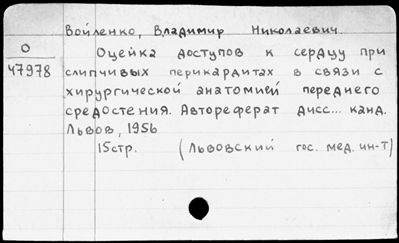 Войленко, Владимир Николаевич.
О
47978
Оценка доступов к сердцу при
слипчивых перикардитах в связи с
хирургической анатомией переднего
средостения. Автореферат дисс... канд.
Львов, 1956
15стр. (Львовский гос. мед. ин-т)